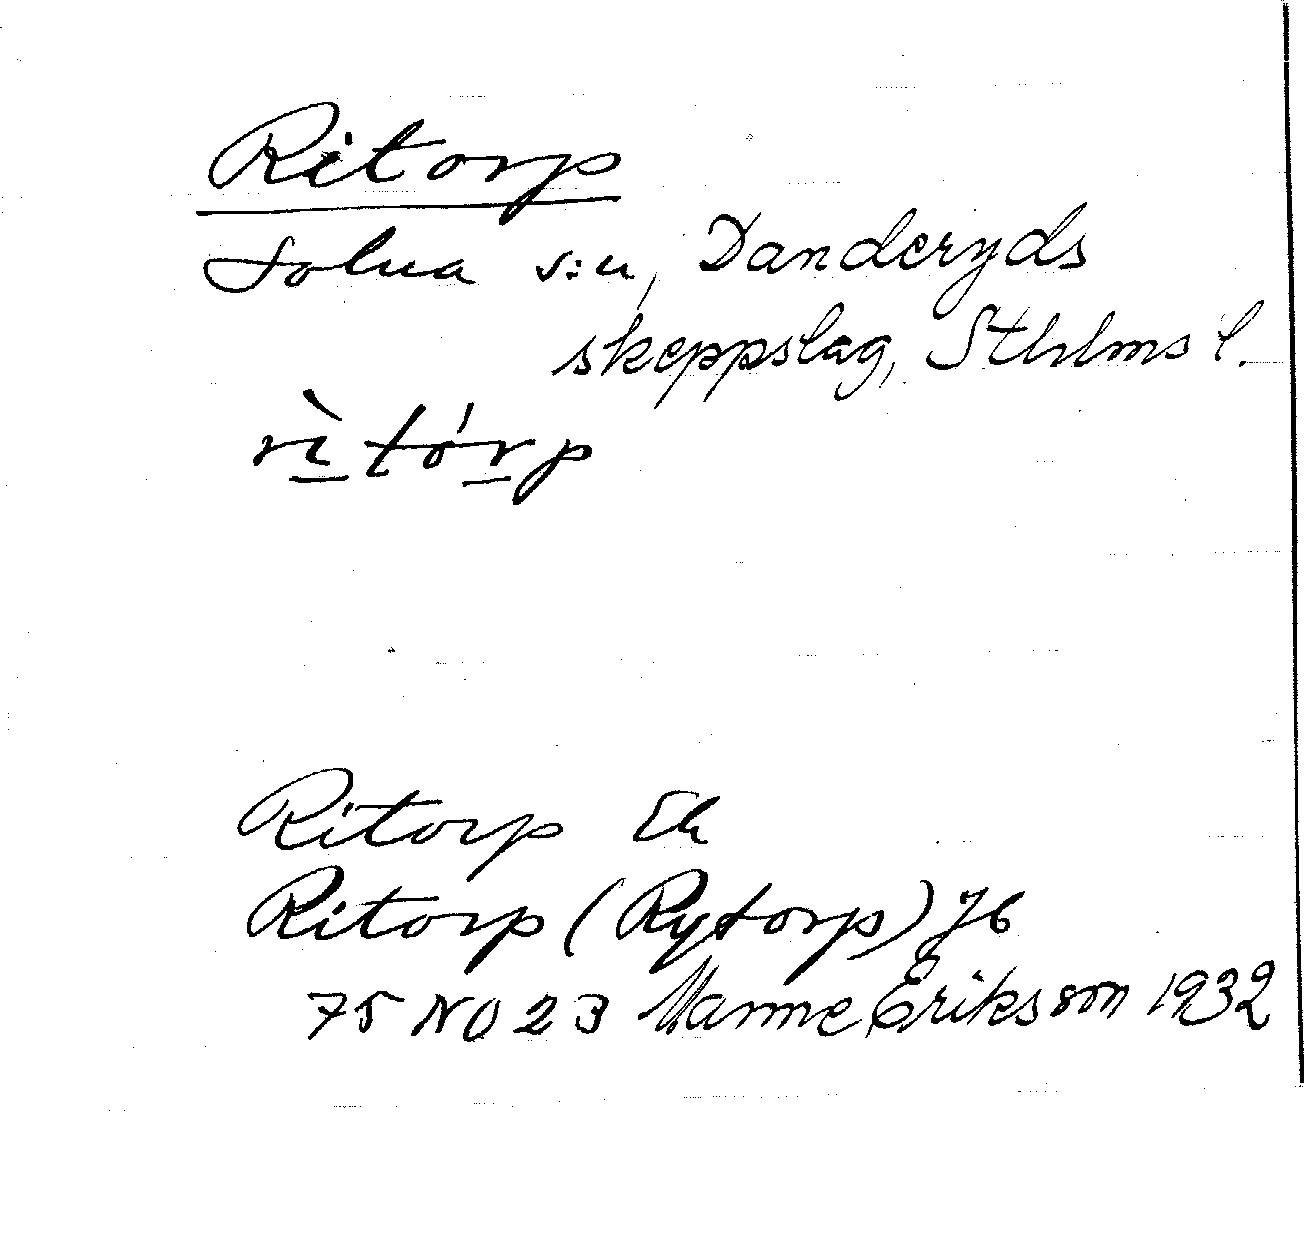 Ritorp
Solna s:n, Danderyds
skeppslag, Sthlms l.
rì tórp
Ritorp Ek
Ritorp (Rytorp) Jb
75 NO 23 Manne Eriksson 1932